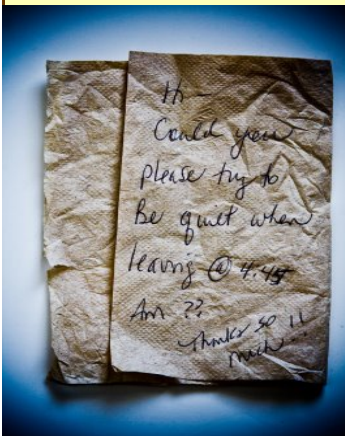 Hi -
Could you
please try to
Be quiet when
leaving @ 4:45
Am ??
Thanks so
much !!